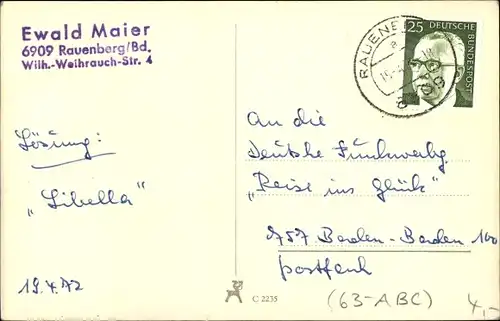 Ewald Maier
6909 Rauenberg/Bd.
Wilh.-Weihrauch-Str. 4
25
DEUTSCHE
BUNDESPOST
RAUENB
6909
Lösung:
„Libella"
19.4.72
An die
Deutsche Funkwerbg.
„Reise ins Glück"
757 Baden-Baden 100
Postfach
C 2235
(63-ABC)
4,-